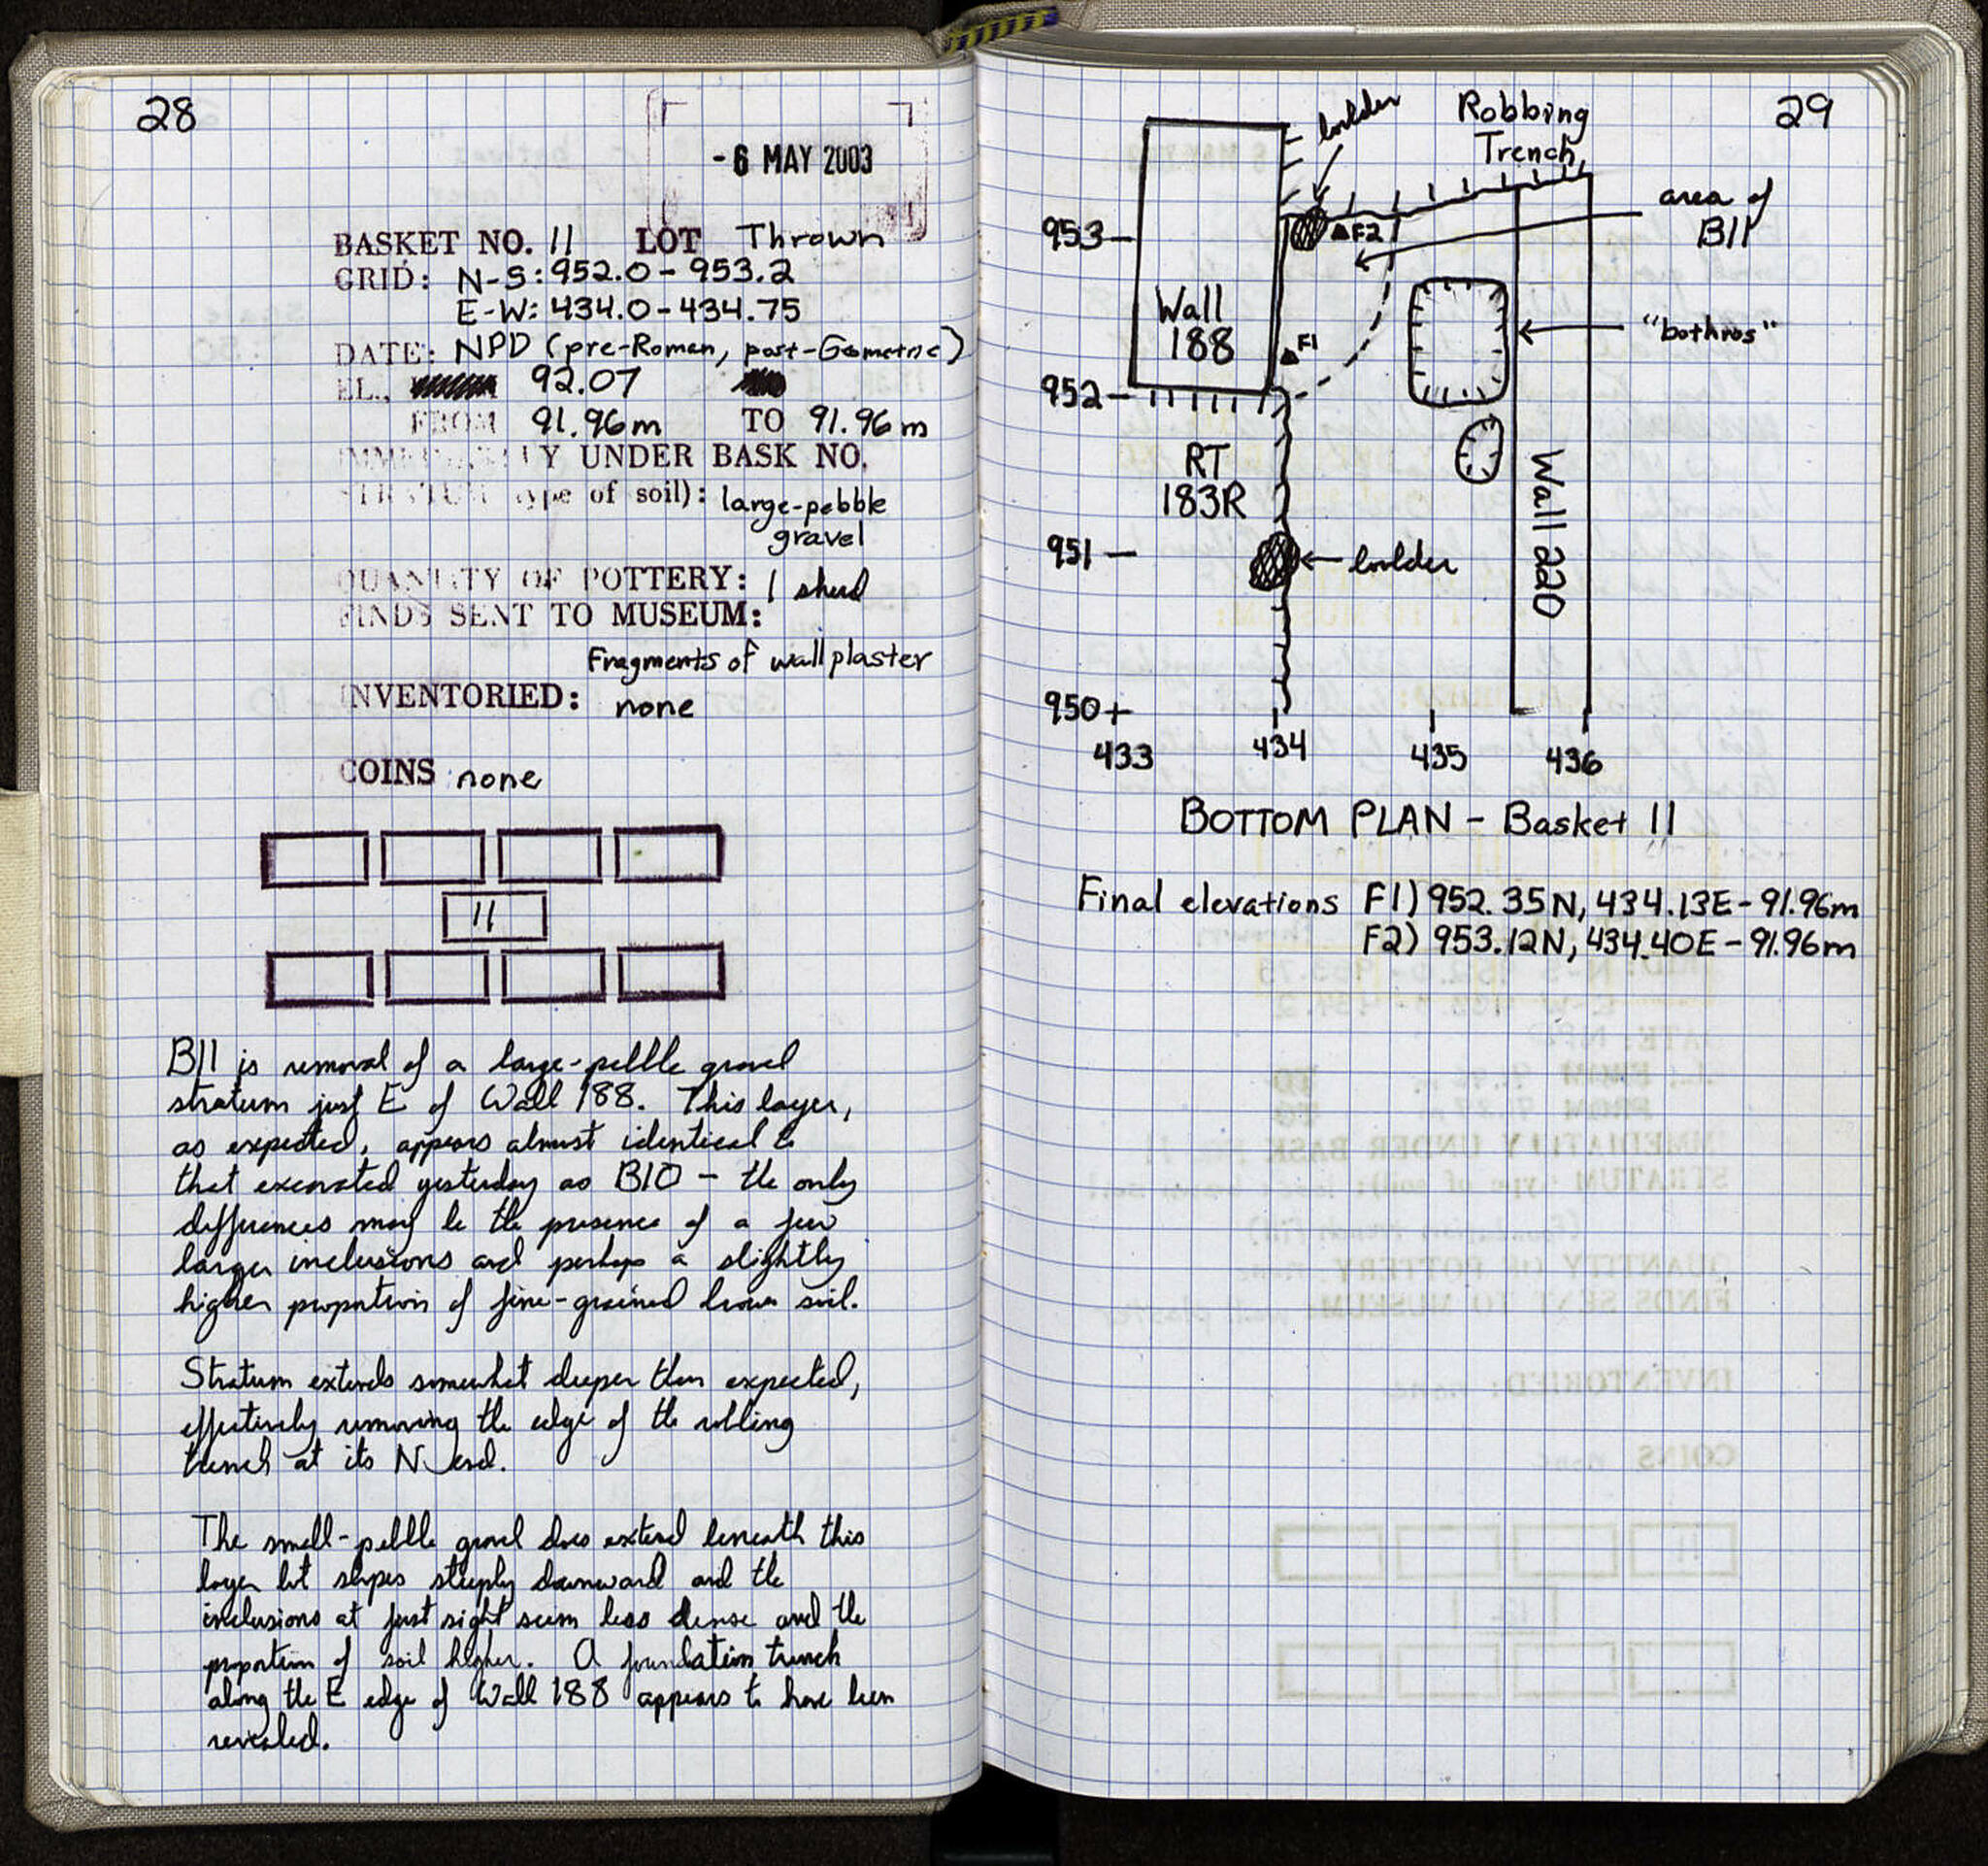 28
- 6 MAY 2003
BASKET NO. 11 LOT Thrown
GRID: N-S: 952.0-953.2
E-W: 434.0-434.75
DATE: NPD (pre-Roman, post-Geometric)
EL., 92.07
FROM 91.96m TO 91.96m
IMMEDIATLY UNDER BASK NO.
STRATUM type of soil): large-pebble
gravel
QUANTITY OF POTTERY: 1 sherd
FINDS SENT TO MUSEUM:
Fragments of wall plaster
INVENTORIED: none
COINS: none
11
B11 is removal of a large-pebble gravel
stratum just E of Wall 188. This layer,
as expected, appears almost identical to
that excavated yesterday as B10 - the only
differences may be the presence of a few
larger inclusions and perhaps a slightly
higher proportion of fine-grained brown soil.
Stratum extends somewhat deeper than expected,
effectively removing the edge of the robbing
trench at its N end.
The small-pebble gravel does extend beneath this
layer but slopes steeply downward and the
inclusions at first sight seem less dense and the
proportion of soil higher. A foundation trench
along the E edge of Wall 188 appears to have been
revealed.
29
boulder
Robbing
Trench
area of
B11
953
F2
Wall
188
F1
"bothros"
952
RT
183R
Wall 220
951
boulder
950
433 434 435 436
BOTTOM PLAN - Basket 11
Final elevations F1) 952.35N, 434.13E-91.96m
F2) 953.12N, 434.40E-91.96m